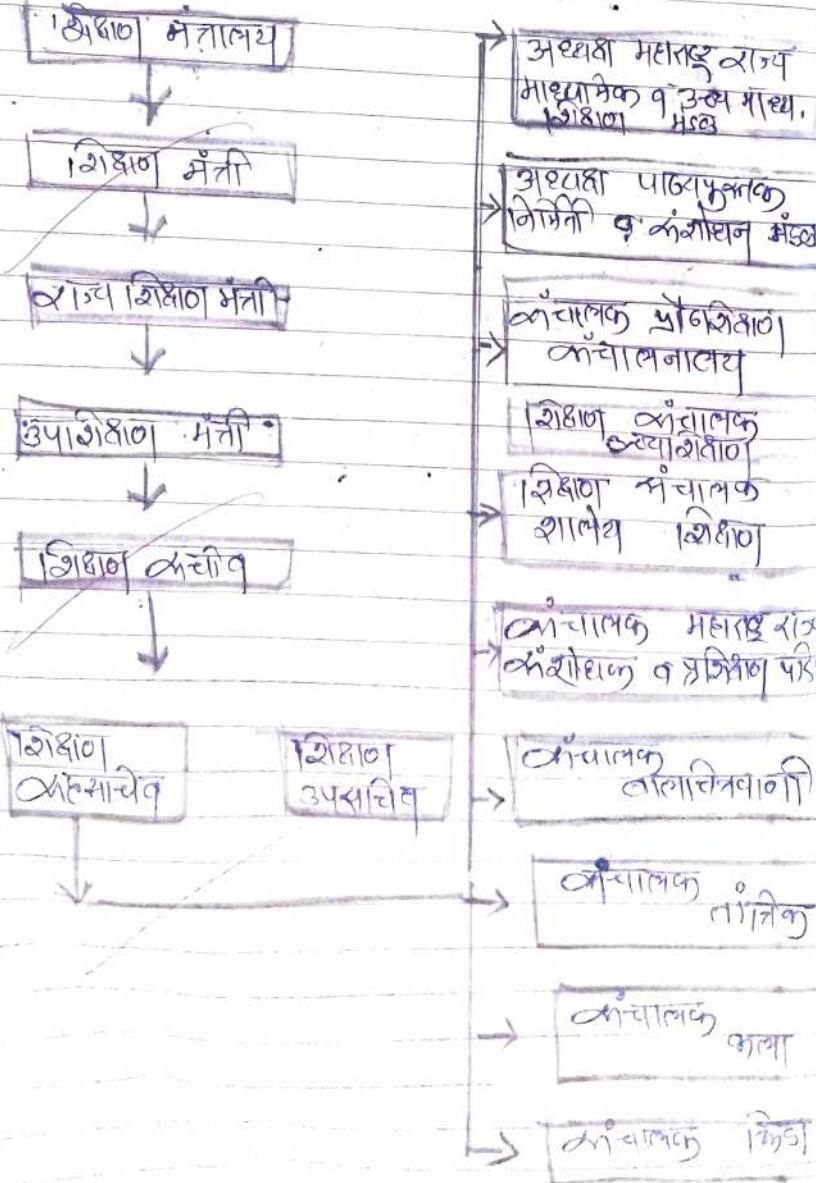 शिक्षण मंत्रालय
शिक्षण मंत्री
राज्य शिक्षण मंत्री
उपशिक्षण मंत्री
शिक्षण सचीव
शिक्षण
सहसचिव
शिक्षण
उपसचिव
अध्यक्ष महाराष्ट्र राज्य
माध्यामिक व उच्च माध्य.
शिक्षण मंडळ
अध्यक्ष पाठ्यपुस्तक
निर्मिती व संशोधन मंडळ
संचालक प्रौढशिक्षण
संचालनालय
शिक्षण संचालक
उच्चशिक्षण
शिक्षण संचालक
शालेय शिक्षण
संचालक महाराष्ट्र राज्य
संशोधक व प्रशिक्षण परि
संचालक
बालचित्रवाणी
संचालक
तांत्रिक
संचालक
कला
संचालक क्रिडा